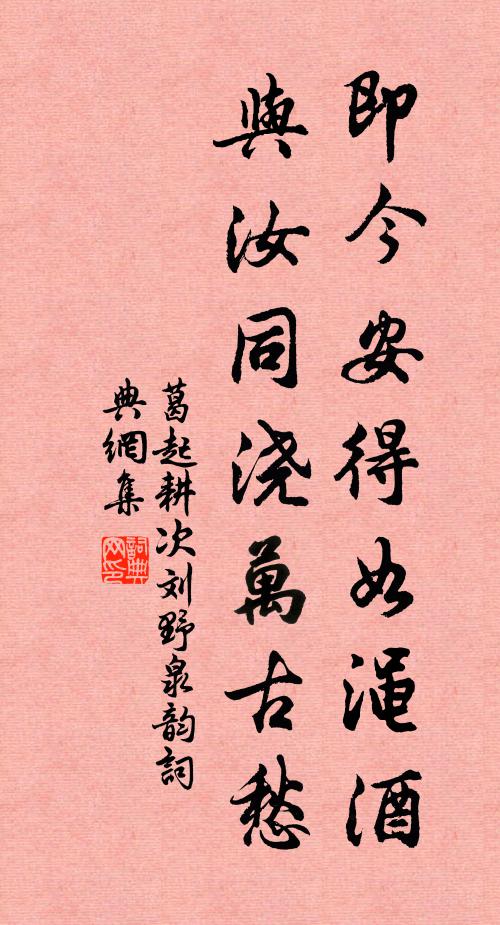 即今安得如渑酒
與汝同浇萬古愁
葛起耕次刘野泉韵詞
典網集
詞典网印